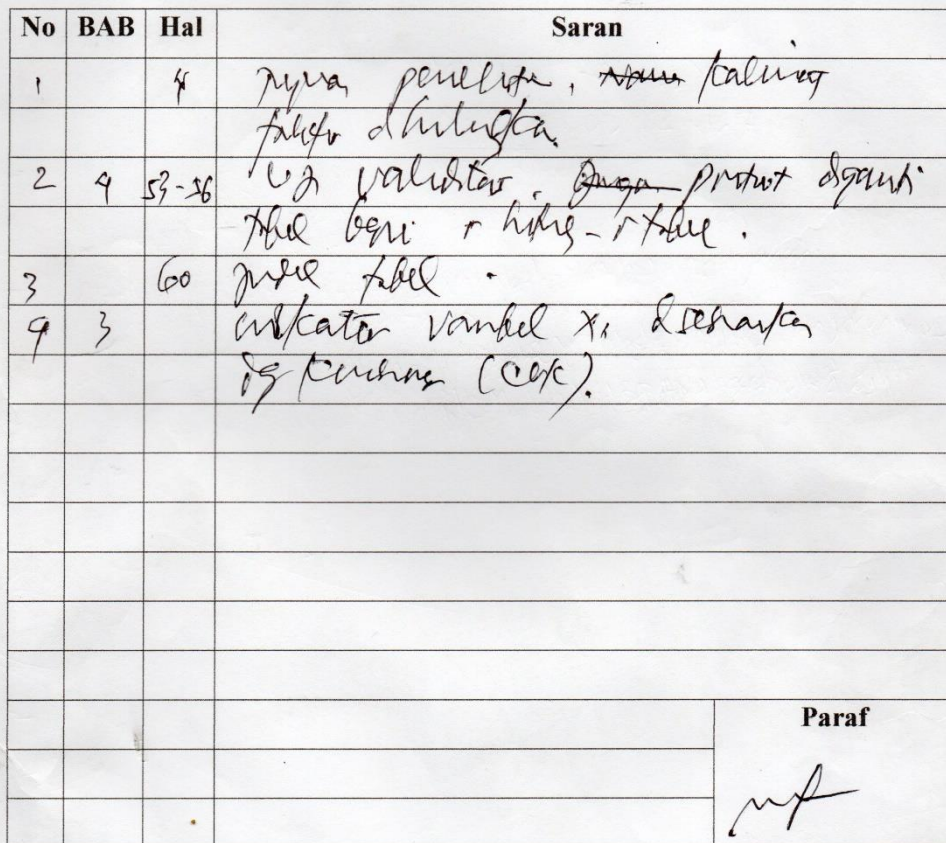 No BAB Hal Saran
1 4 penelitian, kalimat
dihilangkan
2 4 53-56 Uji validitas. product diganti
tabel r hitung - r tabel.
3 60 judul tabel.
4 3 indikator variabel X1 disesuaikan
dg (cek).
Paraf